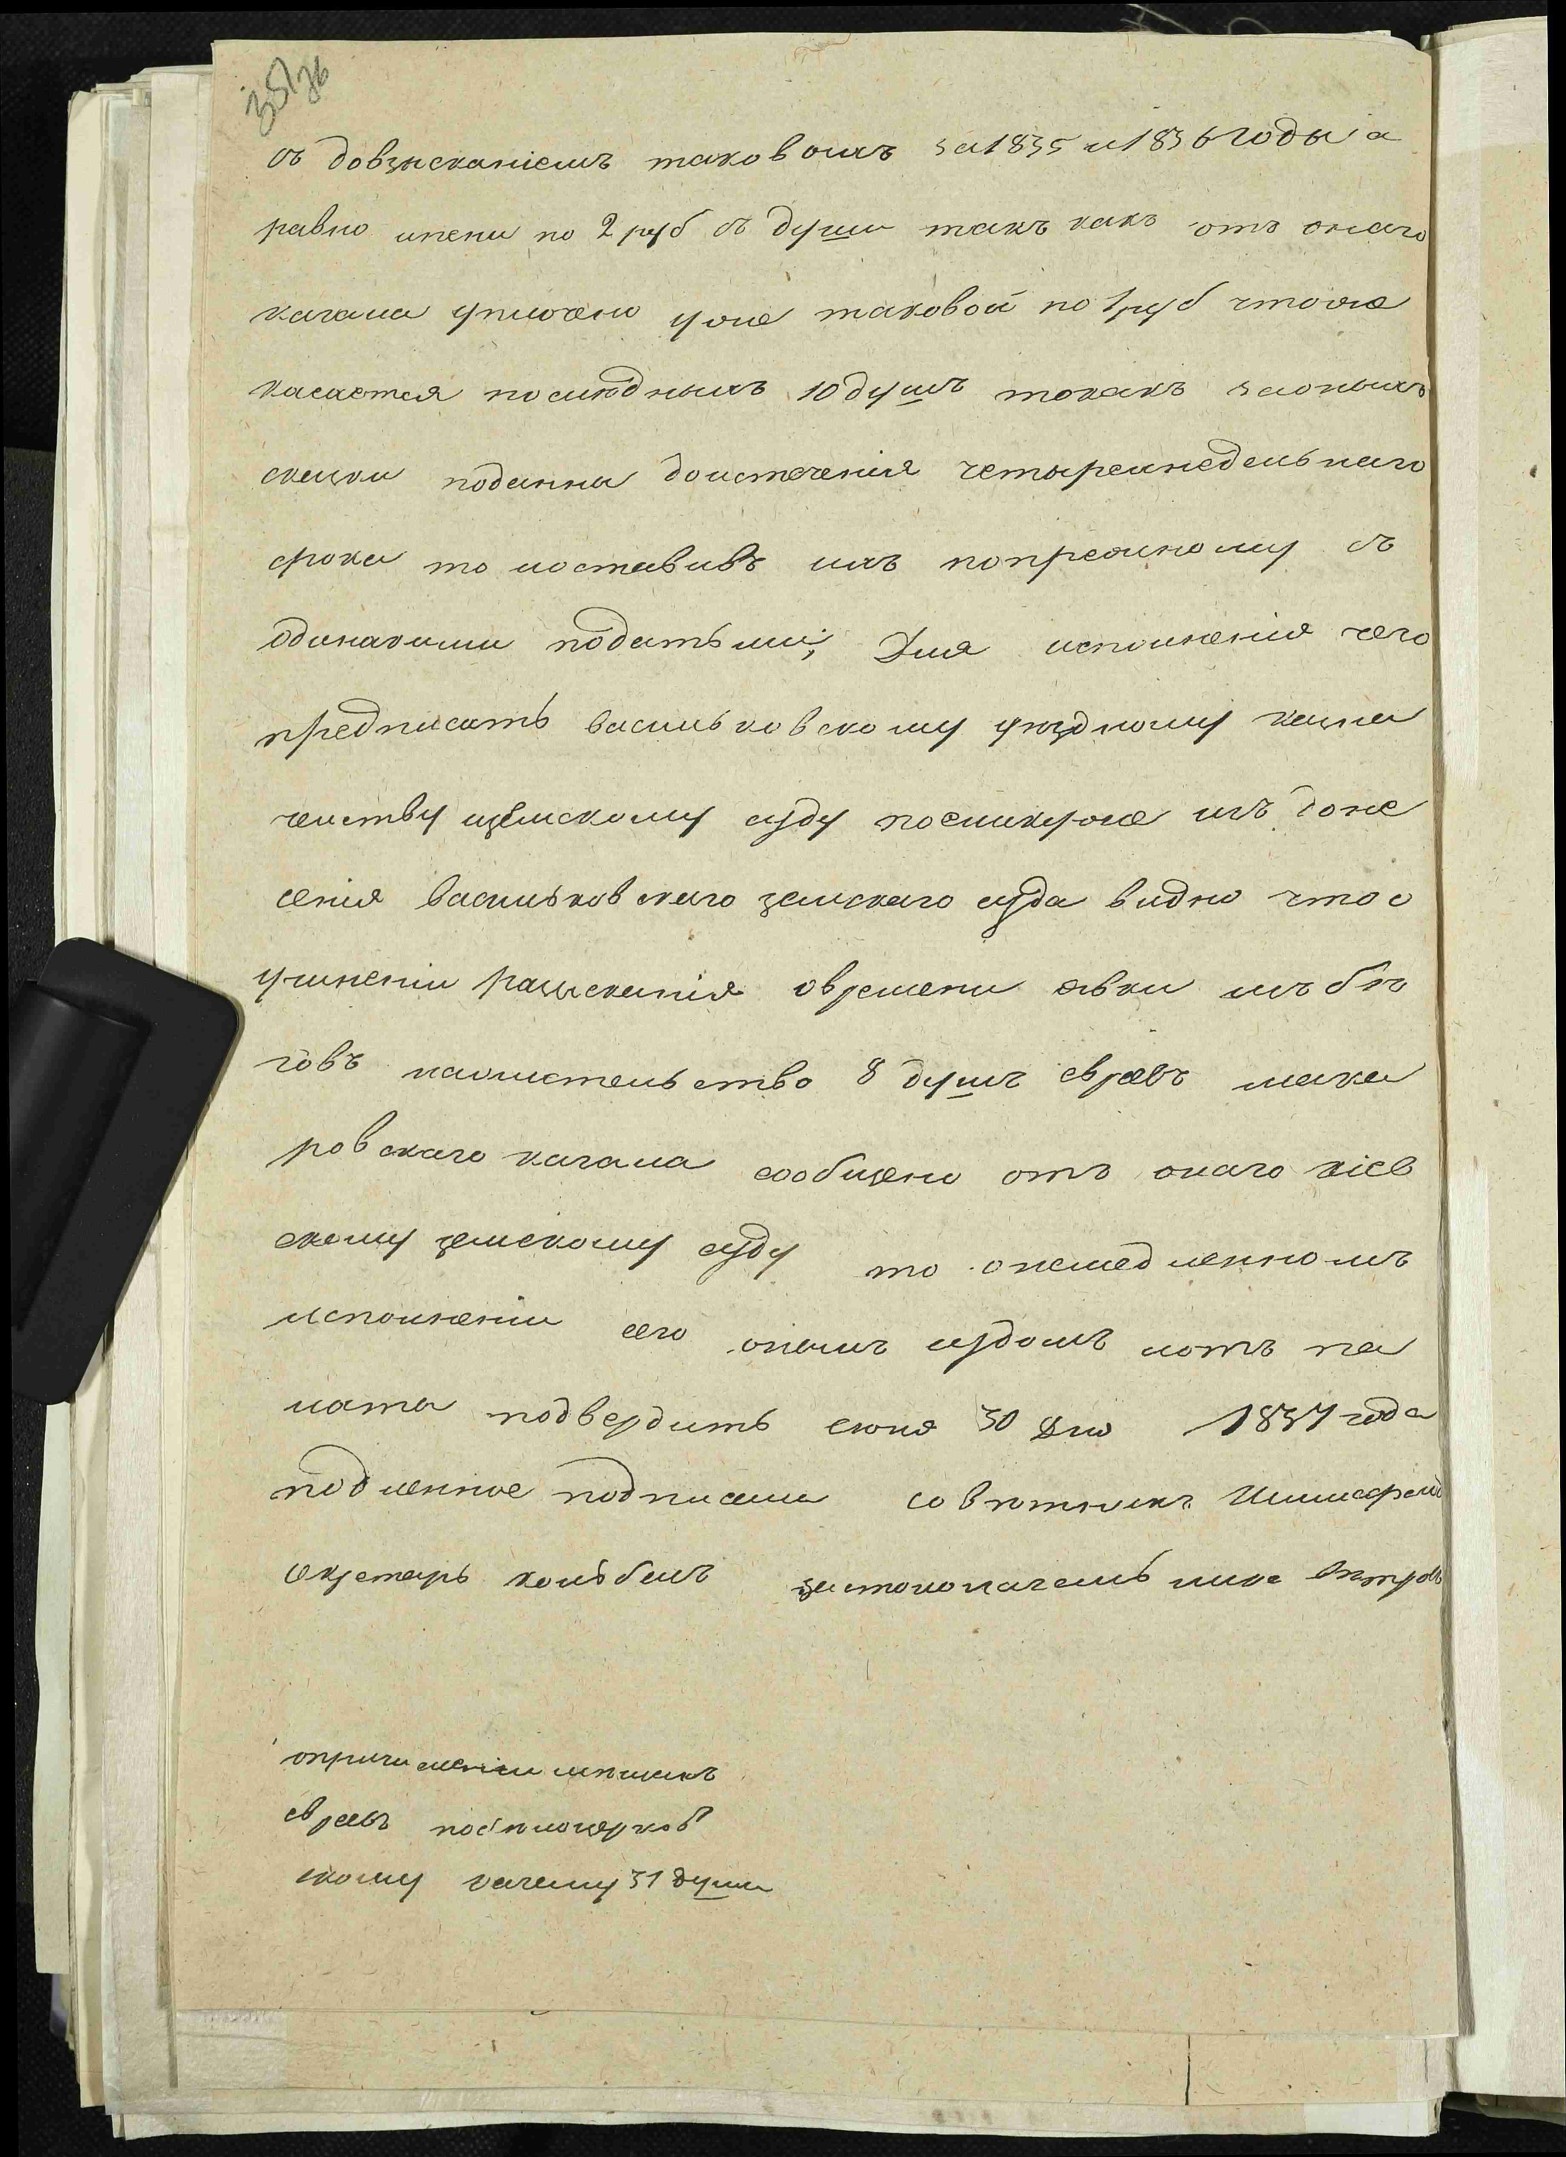 съ довзысканіемъ таковыхъ за1835 и1836годы а
равно ипени по 2 руб съ души такъ какъ отъ онаго
кагала уплочено уже таковой по 1 руб чтоже
касается послюднихъ 10 душъ токакъ заоныхъ
скаски поданна доистеченія четырехнедельнаго
срока то иоставивъ ихъ попрежнему съ
одинакими податьми; Для исполненія чего
предписать васильковскому уездному казна
чеиству иземскому суду посликуже изъ доне
сенія васильковскаго земскаго суда видно что о
учиненіи разысканія овремени явки изъ бѣ
говъ нажительство 8 душъ евревъ мака
ровскаго кагала сообщено отъ онаго кіев
скому земскому суду то онемедленномъ
исполненіи сего онымъ судомъ иотъ па
лата подвердить июня 30 Дню 1837 года
подленное подписали совѣтникъ
секретарь застолоначальника
опричисленіи
евревъ побѣлоцерков
скому кагалу 31 души